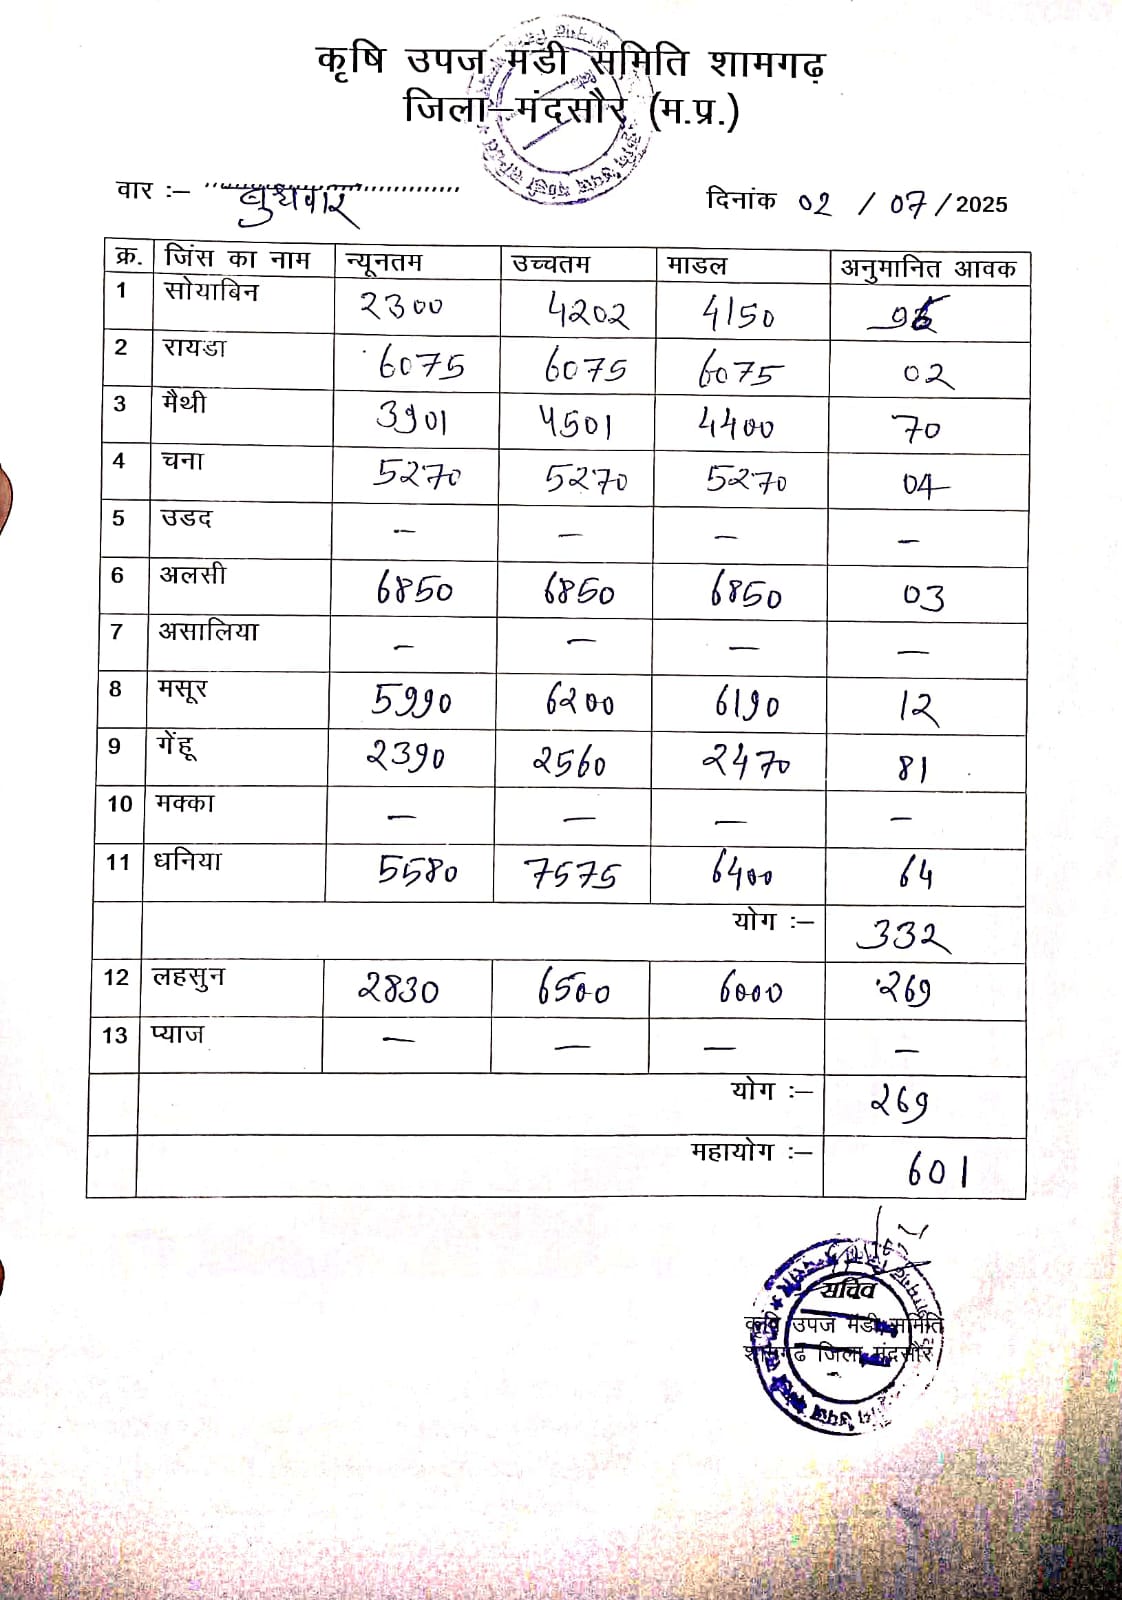 कृषि उपज मंडी समिति शामगढ़
जिला–मंदसौर (म.प्र.)
वार :– बुधवार
दिनांक 02 / 07 / 2025
क्र. जिंस का नाम न्यूनतम उच्चतम माडल अनुमानित आवक
1 सोयाबिन 2300 4202 4150 96
2 रायडा 6075 6075 6075 02
3 मैथी 3901 4501 4400 70
4 चना 5270 5270 5270 04
5 उडद – – – –
6 अलसी 6850 6850 6850 03
7 असालिया – – – –
8 मसूर 5990 6200 6190 12
9 गेंहू 2390 2560 2470 81
10 मक्का – – – –
11 धनिया 5580 7575 6400 64
योग :– 332
12 लहसुन 2830 6500 6000 269
13 प्याज – – – –
योग :– 269
महायोग :– 601
सचिव
कृषि उपज मंडी समिति
शामगढ जिला मंदसौर